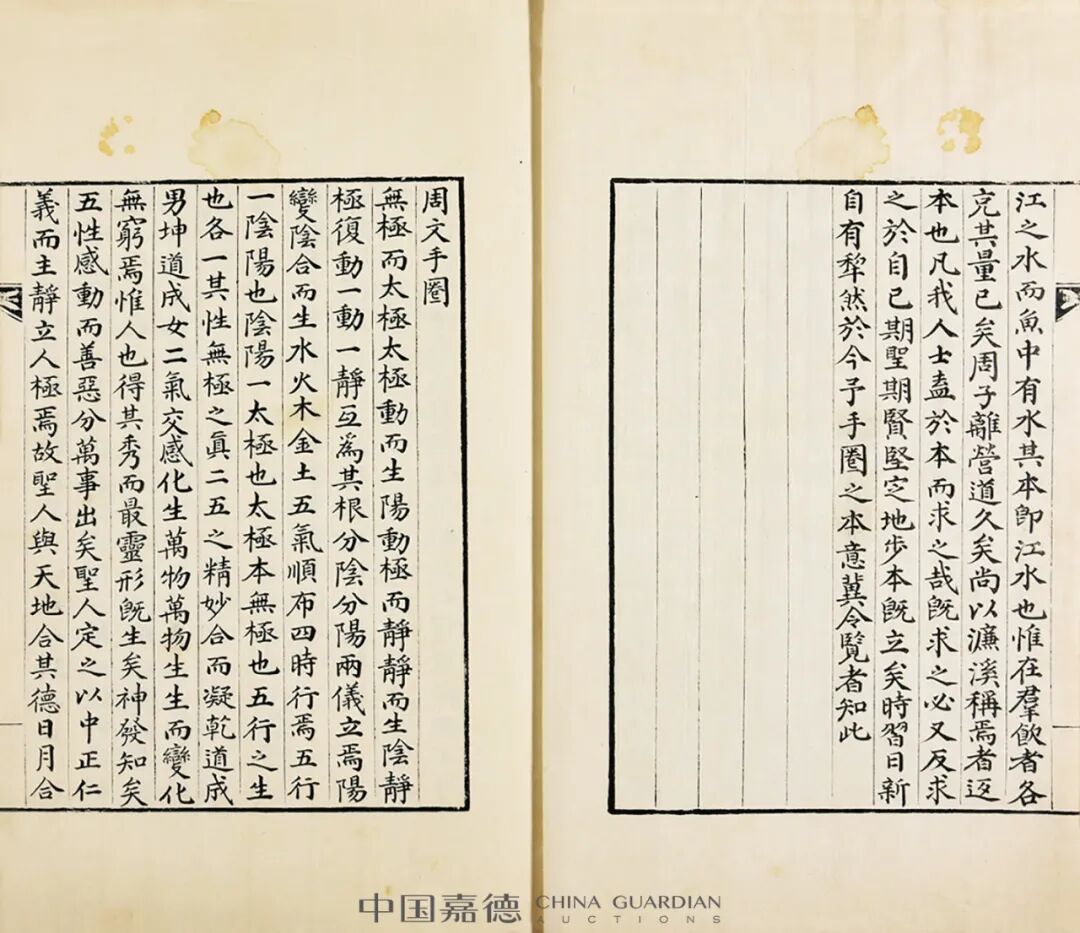 江之水而魚中有水其本卽江水也惟在羣飮者各
充其量已矣周子離營道久矣尚以濂溪稱焉者返
本也凡我人士盍於本而求之哉旣求之必又反求
之於自已期聖期賢堅定地步本旣立矣時習日新
自有犂然於今予手圈之本意冀令覽者知此
周文手圈
無極而太極太極動而生陽動極而靜靜而生陰靜
極復動一動一靜互爲其根分陰分陽兩儀立焉陽
變陰合而生水火木金土五氣順布四時行焉五行
一陰陽也陰陽一太極也太極本無極也五行之生
也各一其性無極之眞二五之精妙合而凝乾道成
男坤道成女二氣交感化生萬物萬物生生而變化
無窮焉惟人也得其秀而最靈形旣生矣神發知矣
五性感動而善惡分萬事出矣聖人定之以中正仁
義而主靜立人極焉故聖人與天地合其德日月合
中国嘉德 CHINA GUARDIAN
AUCTIONS